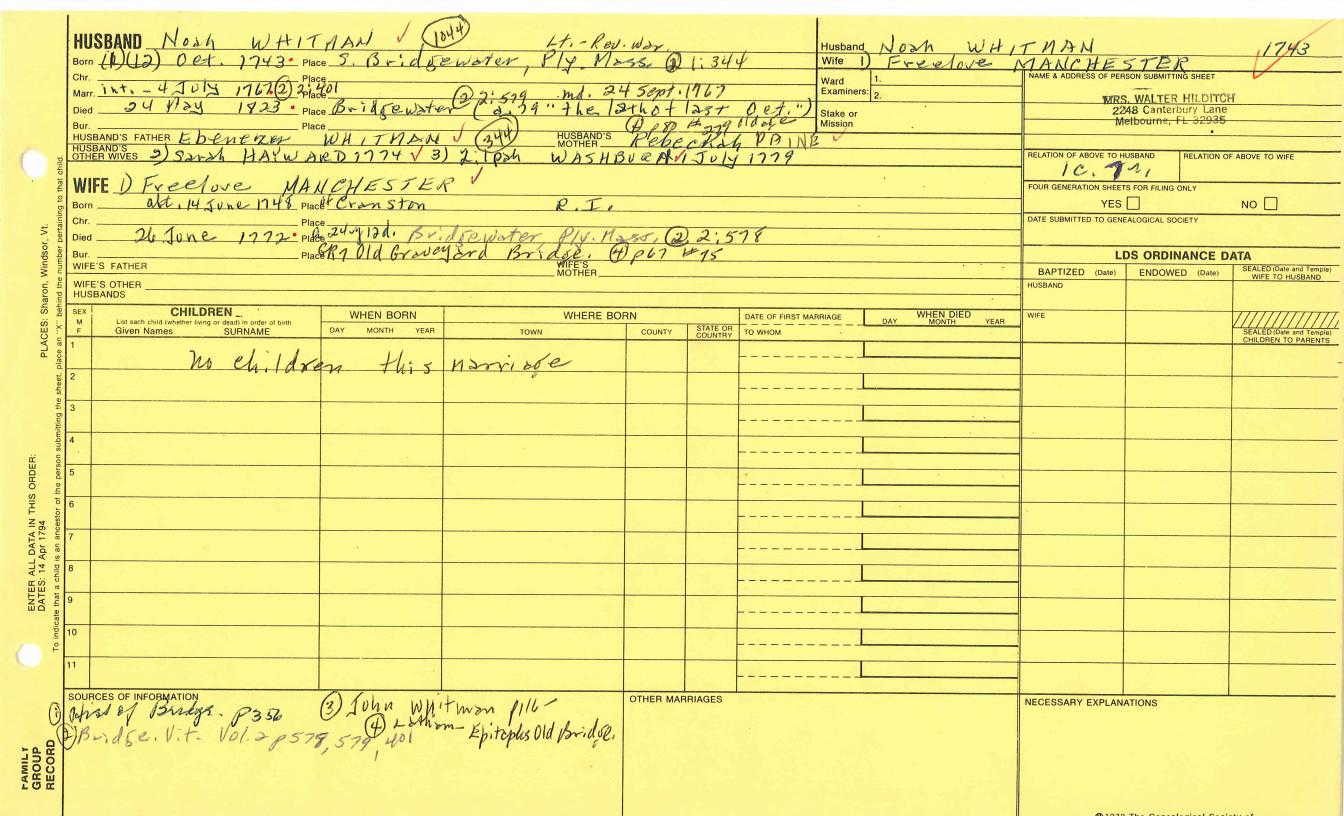 HUSBAND Noah WHITMAN ✓ 1044 Lt. - Rev. War.
Born (1)(12) Oct. 1743 Place S. Bridgewater, Ply. Mass. (2) 1:344
Chr. Place
Marr. int. - 4 July 1767 (2) 2:401 Place (2) 2:579 md. 24 Sept. 1767
Died 24 May 1823 Place Bridgewater (a. 79 "the 12th of last Oct.")
Bur. Place (4) p 87 # 279 old age
HUSBAND'S FATHER Ebenezer WHITMAN ✓ (344) HUSBAND'S MOTHER Rebeckah PAINE ✓
HUSBAND'S OTHER WIVES 2) Sarah HAYWARD 1774 ✓ 3) Zilpah WASHBURN ✓ 1 July 1779
WIFE 1) Freelove MANCHESTER ✓
Born abt. 14 June 1748 Place of Cranston R.I.
Chr. Place
Died 26 June 1772 Place a. 24 y 12d. Bridgewater, Ply. Mass. (2) 2:578
Bur. Place GR7 Old Graveyard Bridge. (4) p67 #75
WIFE'S FATHER WIFE'S MOTHER
WIFE'S OTHER HUSBANDS
Husband Noah WHITMAN 1743
Wife 1) Freelove MANCHESTER
Ward Examiners: 1.
2.
Stake or Mission
NAME & ADDRESS OF PERSON SUBMITTING SHEET
MRS. WALTER HILDITCH
2248 Canterbury Lane
Melbourne, FL 32935
RELATION OF ABOVE TO HUSBAND RELATION OF ABOVE TO WIFE
1c.
FOUR GENERATION SHEETS FOR FILING ONLY
YES NO
DATE SUBMITTED TO GENEALOGICAL SOCIETY
LDS ORDINANCE DATA
BAPTIZED (Date) ENDOWED (Date) SEALED (Date and Temple) WIFE TO HUSBAND
HUSBAND
WIFE
SEALED (Date and Temple) CHILDREN TO PARENTS
SEX M F
CHILDREN
List each child (whether living or dead) in order of birth
Given Names SURNAME
WHEN BORN
DAY MONTH YEAR
WHERE BORN
TOWN COUNTY STATE OR COUNTRY
DATE OF FIRST MARRIAGE
TO WHOM
WHEN DIED
DAY MONTH YEAR
1
No children this marriage
2
3
4
5
6
7
8
9
10
11
SOURCES OF INFORMATION
(1) of Bridge. p356
(2) Bridge. Vit. Vol. 2 p578, 579, 401
(3) John Whitman
(4) Latham - Epitaphs Old Bridge.
OTHER MARRIAGES
NECESSARY EXPLANATIONS
ENTER ALL DATA IN THIS ORDER:
DATES: 14 Apr 1794
PLACES: Sharon, Windsor, Vt.
To indicate that a child is an ancestor of the person submitting the sheet, place an "X" behind the number pertaining to that child.
FAMILY GROUP RECORD
The Genealogical Society of